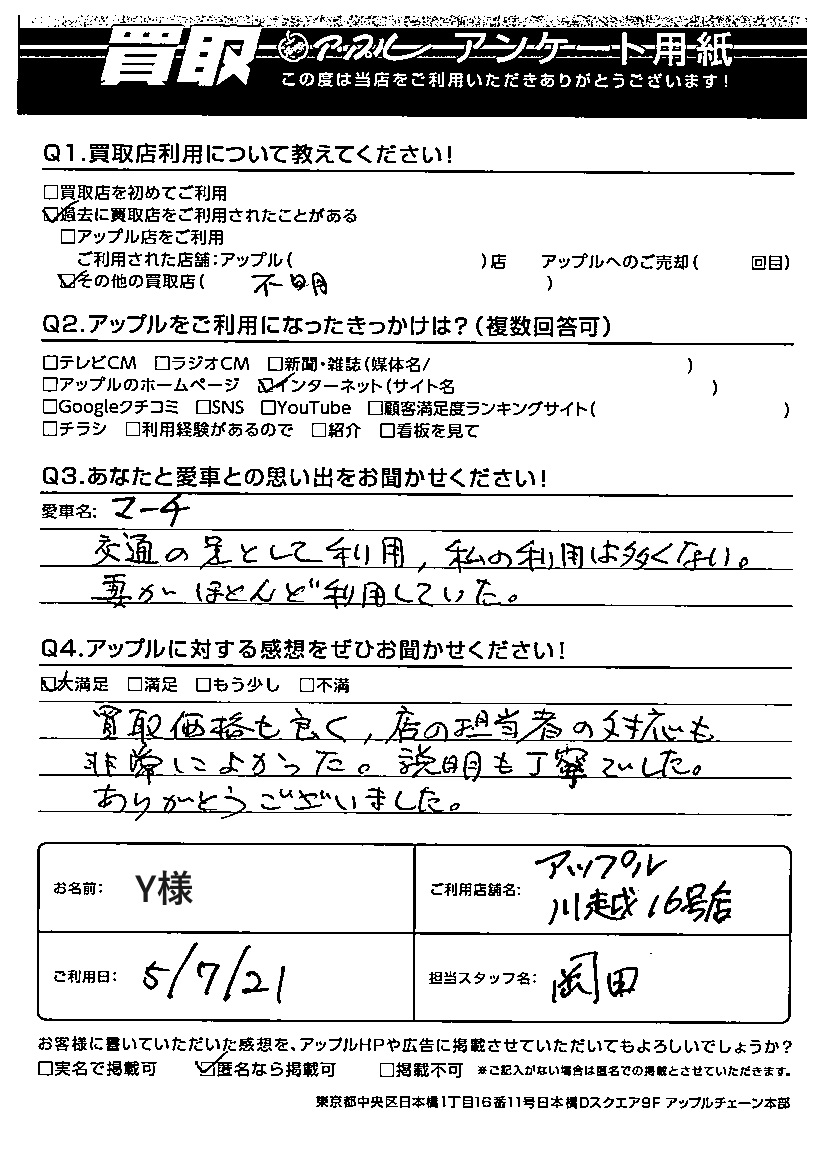 買取 アップル アンケート用紙
この度は当店をご利用いただきありがとうございます！
Q1.買取店利用について教えてください！
□買取店を初めてご利用
☑過去に買取店をご利用されたことがある
□アップル店をご利用
ご利用された店舗：アップル（ ）店 アップルへのご売却（ 回目）
☑その他の買取店（ 不明 ）
Q2.アップルをご利用になったきっかけは？（複数回答可）
□テレビCM □ラジオCM □新聞・雑誌（媒体名/ ）
□アップルのホームページ ☑インターネット（サイト名 ）
□Googleクチコミ □SNS □YouTube □顧客満足度ランキングサイト（ ）
□チラシ □利用経験があるので □紹介 □看板を見て
Q3.あなたと愛車との思い出をお聞かせください！
愛車名： マーチ
交通の足として利用，私の利用は多くない。
妻がほとんど利用していた。
Q4.アップルに対する感想をぜひお聞かせください！
☑大満足 □満足 □もう少し □不満
買取価格も良く，店の担当者の対応も
非常によかった。説明も丁寧でした。
ありがとうございました。
お名前： Y様 ご利用店舗名： アップル
川越16号店
ご利用日： 5/7/21 担当スタッフ名： 岡田
お客様に書いていただいた感想を、アップルHPや広告に掲載させていただいてもよろしいでしょうか？
□実名で掲載可 ☑匿名なら掲載可 □掲載不可 ※ご記入がない場合は匿名での掲載とさせていただきます。
東京都中央区日本橋1丁目16番11号日本橋Dスクエア9F アップルチェーン本部